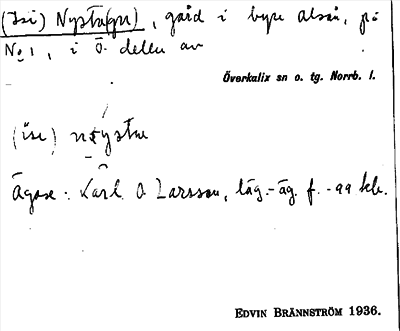 (Isi) Nystu(gu), gård i byn Alsån, på
No 1, i ö. delen av
Överkalix sn o. tg. Norrb. l.
(ise)
Ägare: Karl O Larsson, läg.-äg. f. -99 kb.
EDVIN BRÄNNSTRÖM 1936.